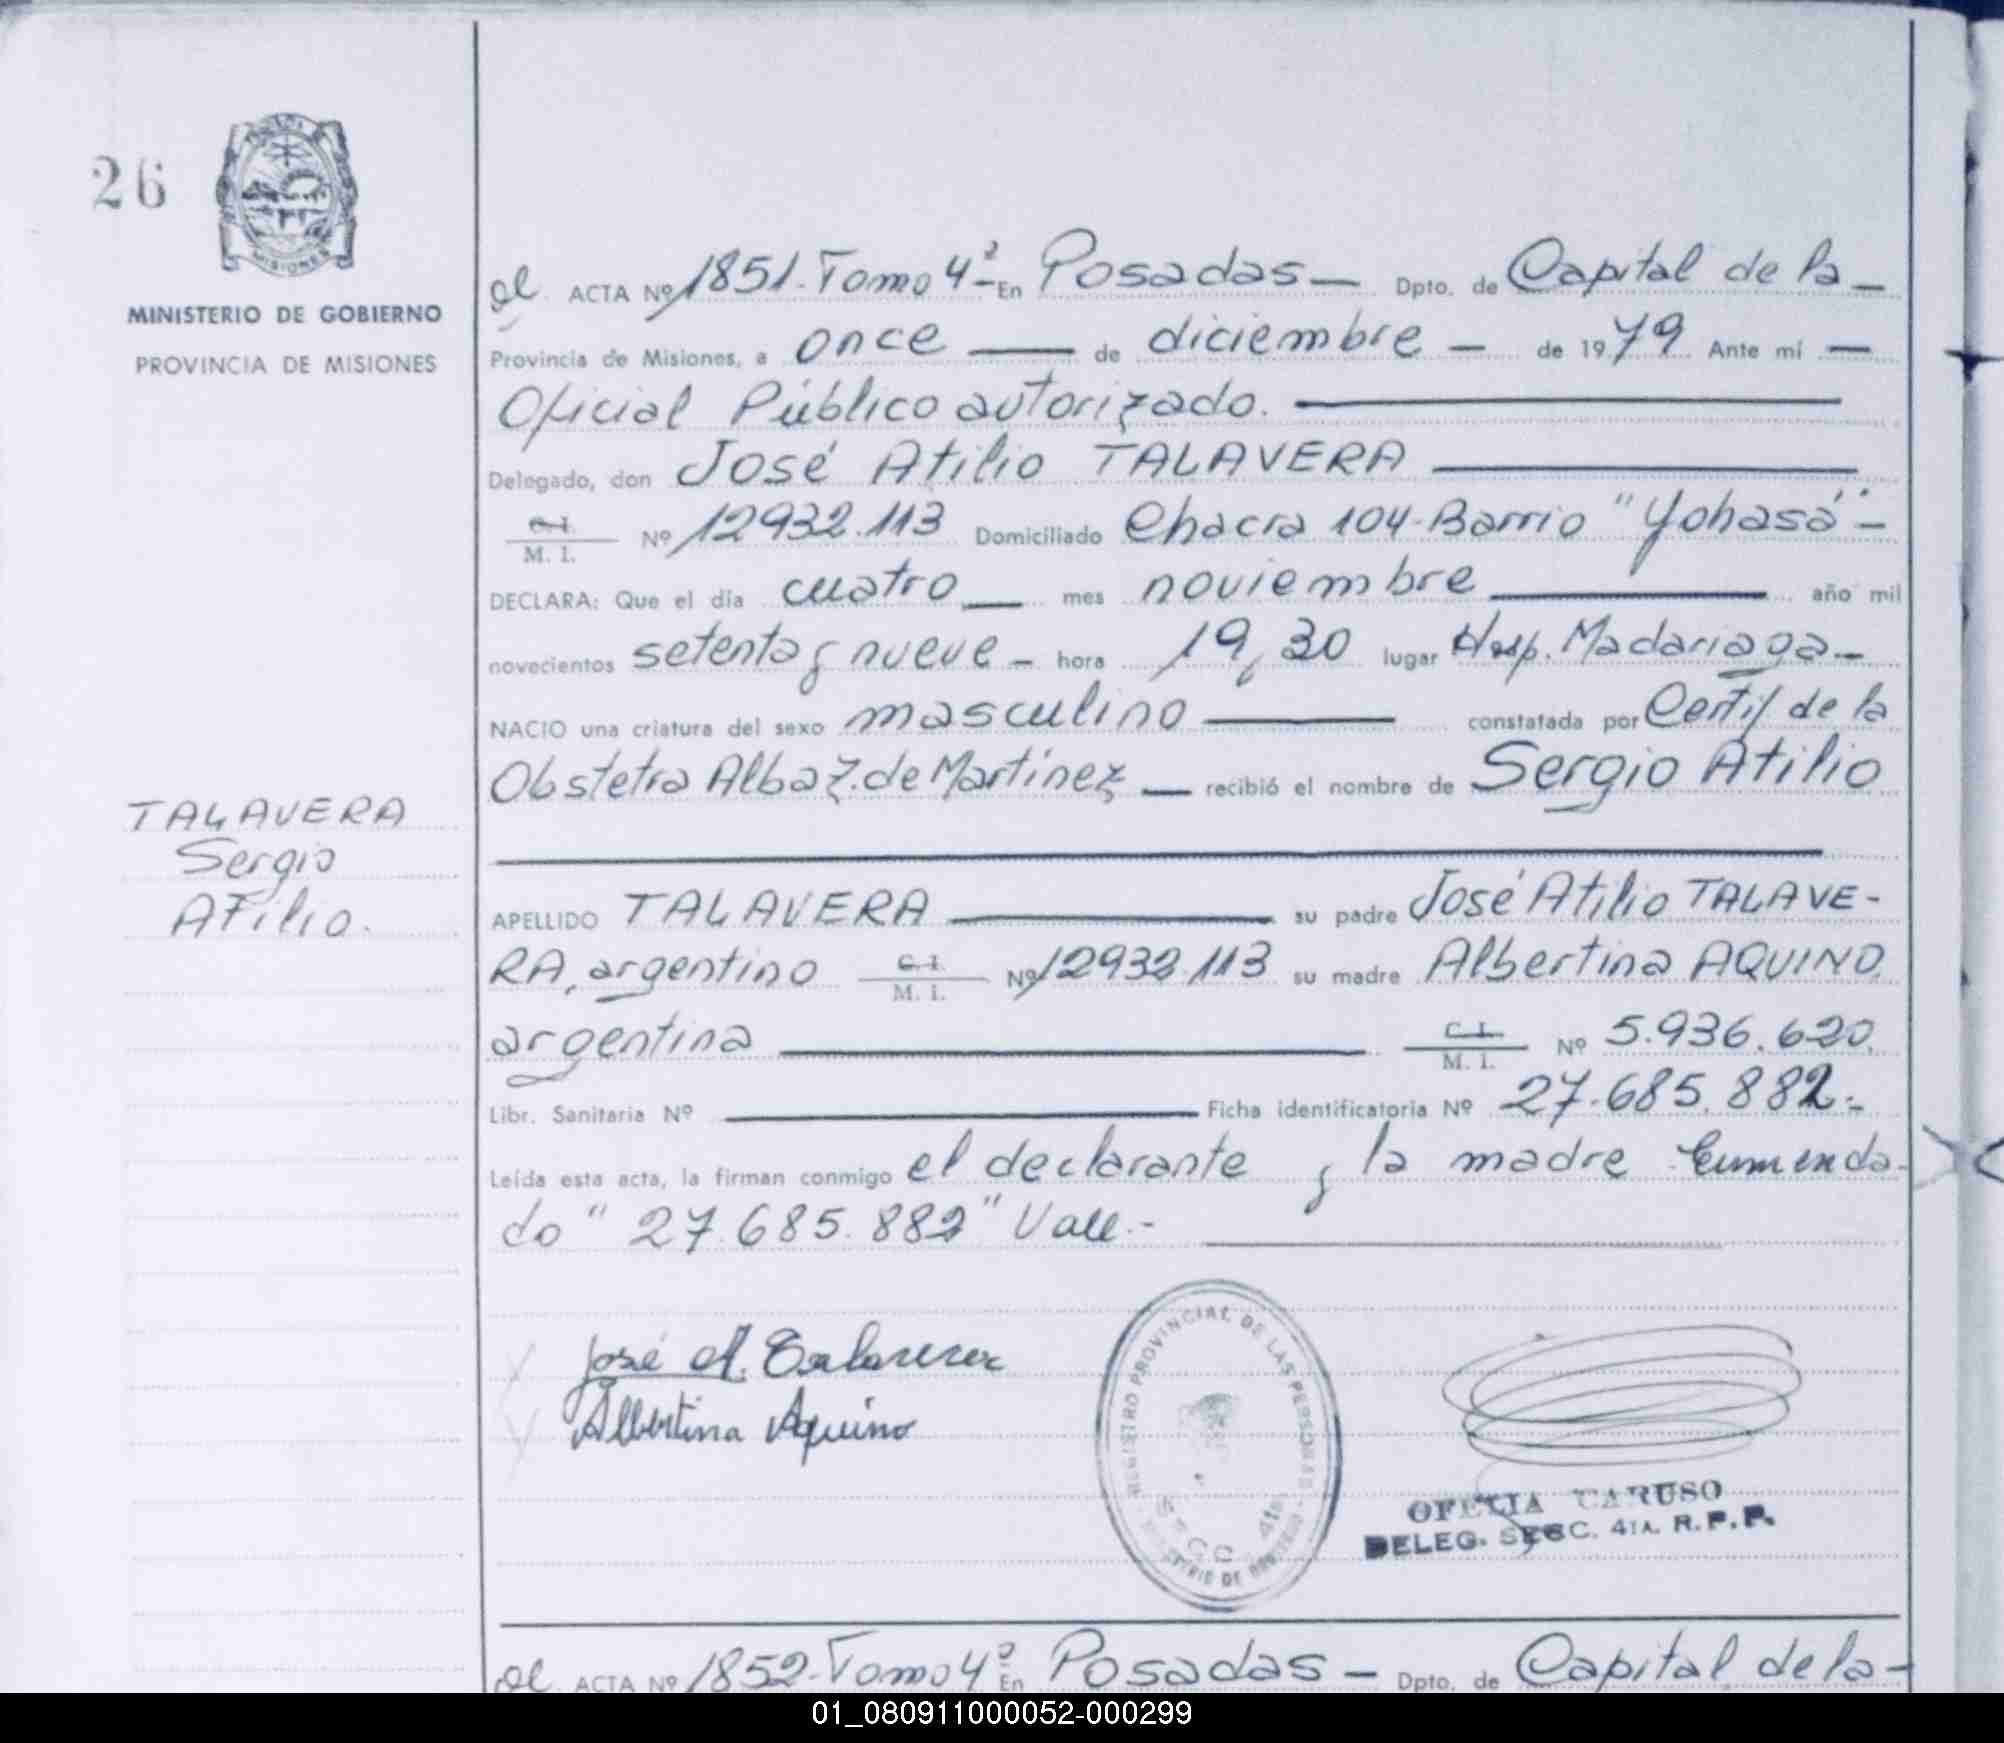 26
MISIONES
MINISTERIO DE GOBIERNO
PROVINCIA DE MISIONES
TALAVERA
Sergio
Atilio.
ACTA Nº 1851. Tomo 4º - En Posadas — Dpto. de Capital de la —
Provincia de Misiones, a once — de diciembre — de 1979 Ante mí —
Oficial Público autorizado. —
Delegado, don José Atilio TALAVERA —
C. I. / M. I. Nº 12932.113 Domiciliado Chacra 104-Barrio "Yohasá" -
DECLARA: Que el día cuatro — mes noviembre — año mil
novecientos setenta y nueve - hora 19,30 lugar Hosp. Madariaga -
NACIO una criatura del sexo masculino — constatada por Certif de la
Obstetra Alba Z. de Martínez — recibió el nombre de Sergio Atilio
APELLIDO TALAVERA — su padre José Atilio TALAVE-
RA, argentino C. I. / M. I. Nº 12932.113 su madre Albertina AQUINO.
argentina — C. I. / M. I. Nº 5.936.620.
Libr. Sanitaria Nº — Ficha identificatoria Nº 27.685.882.-
Leída esta acta, la firman conmigo el declarante y la madre Enmenda-
do "27.685.882" Vale.-
José A. Talavera
Albertina Aquino
REGISTRO PROVINCIAL DE LAS PERSONAS
MINISTERIO DE GOBIERNO
SECC. 4ta.
OFELIA CARUSO
DELEG. SECC. 4TA. R.P.P.
ACTA Nº 1852-Tomo 4º En Posadas — Dpto. de Capital de la -
01_080911000052-000299